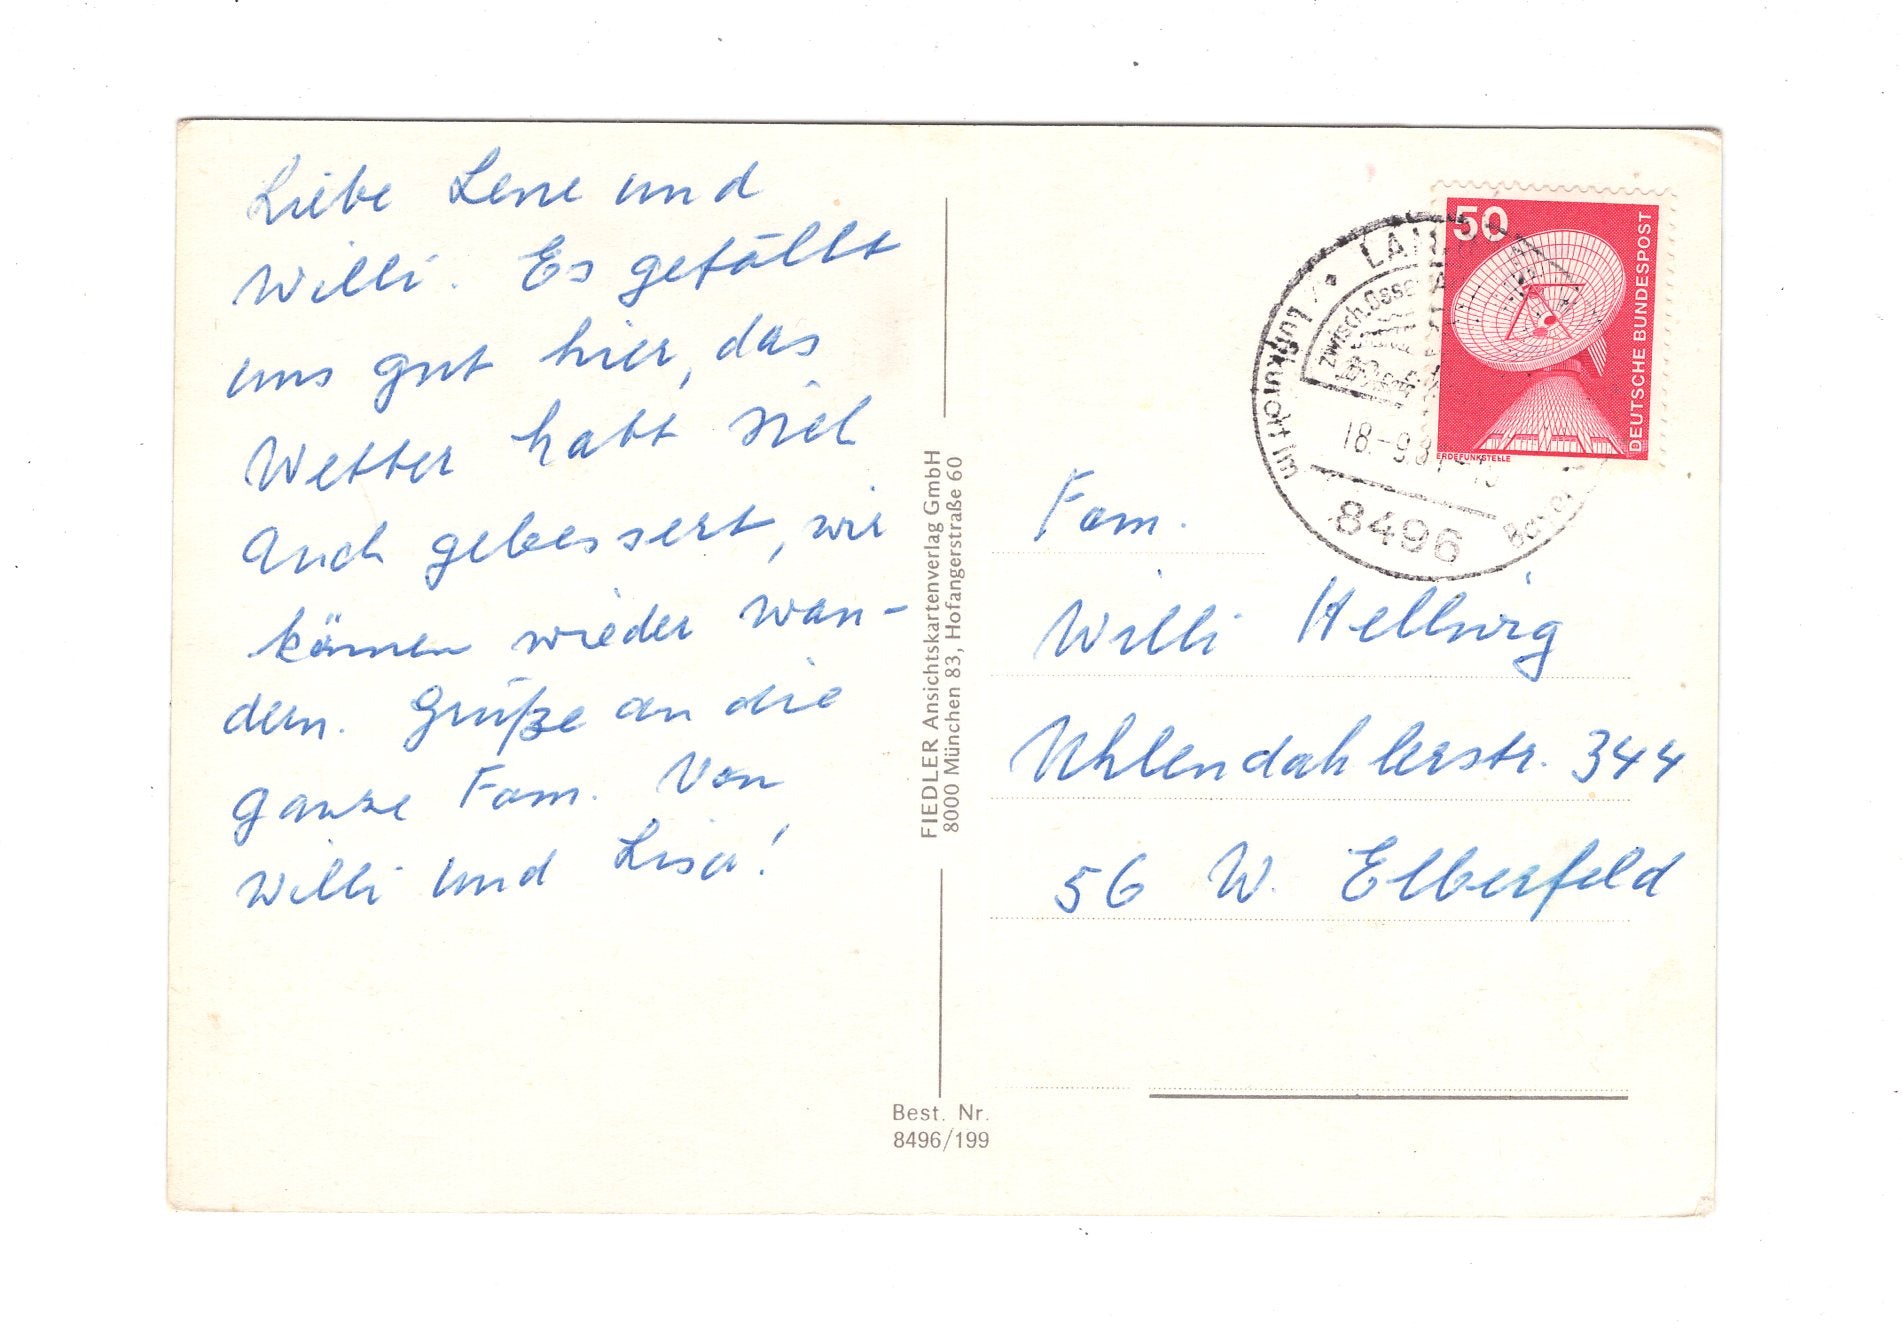 Liebe Lene und
Willi. Es gefällt
uns gut hier, das
Wetter hatt siel
Auch gebessert, wir
können wieder wan-
dern. Grüße an die
ganze Fam. Von
Willi und Lisa!
FIEDLER Ansichtskartenverlag GmbH
8000 München 83, Hofangerstraße 60
Best. Nr.
8496/199
50
DEUTSCHE BUNDESPOST
ERDEFUNKSTELLE
Luftkurort im
zwisch.
18.-9.
8496
Fam.
Willi Hellwig
Uhlendahlerstr. 344
56 W. Elberfeld